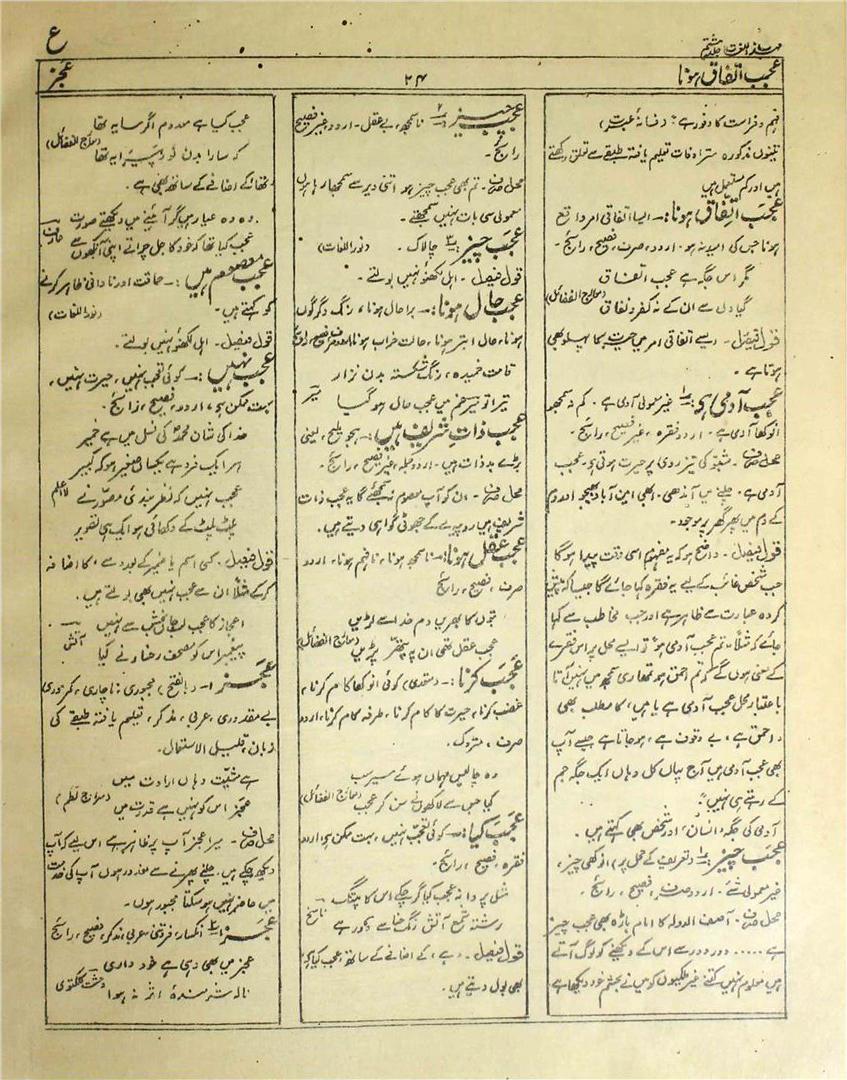 مہذب اللغات جلد ہشتم
ع
عجب اتفاق ہونا
۲۴
عجز
فہم و فراست کا وفور ہے۔ (فسانۂ عبرت)
تینوں مذکورہ مترادفات تعلیم یافتہ طبقے سے تعلق رکھتے
ہیں اور کم مستعمل ہیں
عجب اتفاق ہونا:- ایسا اتفاقی امر واقع
ہونا جس کی امید نہ ہو۔ اردو، صرف، فصیح، رائج۔
مگر اس جگہ ہے عجب اتفاق
گیا دل سے ان کے نہ کفر و نفاق (معارج الفضائل)
قول فیصل۔ ایسے اتفاقی امر میں حیرت کا پہلو بھی
ہوتا ہے۔
عجب آدمی ہے: ۱ غیر معمولی آدمی ہے۔ کم سمجھ
انوکھا آدمی ہے۔ اردو فقرہ، غیر فصیح، رائج۔
محل صرف۔ کی تیز روی پر حیرت ہوتی ہے۔ عجب
آدمی ہے۔ چلنے میں آندھی۔ ابھی امین آباد بھیجو اور دم
کے دم میں پھر گھر پر موجود۔
قول فیصل۔ واضح ہو کہ یہ مفہوم اسی وقت پیدا ہوگا
جب شخص غائب کے لیے یہ فقرہ کہا جائے گا جیسا کہ پیش
کردہ عبارت سے ظاہر ہے اور جب مخاطب سے کہا
جائے گا مثلاً۔ تم عجب آدمی ہو تو ایسے محل پر اس فقرے
کے معنی ہوں گے کہ تم احمق ہو تمھاری سمجھ میں نہیں آتا
باعتبار محل عجب آدمی ہے یا ہیں، کا مطلب بھی
احمق ہے، بے وقوف ہے، ہو جاتا ہے جیسے آپ
بھی عجب آدمی ہیں آج یہاں کل وہاں ایک جگہ جم
کے رہتے ہی نہیں:
آدمی کی جگہ، انسان، اور شخص بھی کہتے ہیں۔
عجب چیز: ۱ (تعریف کے محل پر) انوکھی چیز،
غیر معمولی شے۔ اردو صرف، فصیح، رائج۔
محل صرف۔ آصف الدولہ کا امام باڑہ بھی عجب چیز
ہے ..... دور دور سے اس کے دیکھنے کو لوگ آتے
ہیں معلوم نہیں کتنے غیر ملکیوں کو میں نے بچشم خود دیکھا ہے
عجب چیز ۲ نا سمجھ، بے عقل۔ اردو، غیر فصیح
رائج۔
محل صرف۔ تم بھی عجب چیز ہو اتنی دیر سے سمجھا رہا ہوں
معمولی سی بات نہیں سمجھتے۔
عجب چیز ۳ چالاک۔ (نور اللغات)
قول فیصل۔ اہل لکھنؤ نہیں بولتے۔
عجب حال ہونا:- برا حال ہونا، رنگ دگرگوں
ہونا، حال ابتر ہونا، حالت خراب ہونا۔ اردو صرف فصیح، رائج
قامت خمیدہ، رنگ شکستہ بدن نزار
تیرا تو میر غم میں عجب حال ہو گیا میر
عجب ذات شریف ہیں:- ہجو ملیح، یعنی
بڑے بد ذات ہیں۔ اردو جملہ، غیر فصیح، رائج۔
محل صرف۔ ان کو آپ معصوم نہ سمجھئے گا یہ عجب ذات
شریف ہیں روپے لے کے جھوٹی گواہی دیتے ہیں۔
عجب عقل ہونا:- نا سمجھ ہونا، نافہم ہونا، اردو
صرف، فصیح، رائج
بتوں کا بھریں دم خدا سے لڑیں
عجب عقل تھی ان پہ پتھر پڑیں (معارج الفضائل)
عجب کرنا:- (متعدی) کوئی انوکھا کام کرنا،
غضب کرنا، حیرت کا کام کرنا، طرفہ کام کرنا، اردو
صرف، متروک۔
وہ چالیس مہماں ہوئے سیر سب
کیا جس سے لاکھوں نے سن کر عجب (معارج الفضائل)
عجب کیا:- کوئی تعجب نہیں، بہت ممکن ہے، اردو
فقرہ، فصیح، رائج۔
مثل پروانہ عجب کیا گر چکے اس کا پتنگ ناسخ
رشتۂ شمع آتش رنگ حنا سے ڈور ہے
قول فیصل۔ ہے، کے اضافے کے ساتھ عجب کیا ہے
بھی بول دیتے ہیں۔
عجب کیا ہے معدوم اگر سایہ تھا
کہ سارا بدن نور پیرایہ تھا (معارج الفضائل)
تھا، کے اضافے کے ساتھ بھی ہے۔
وہ وہ عیار ہیں گر آئینے میں دیکھتے صورت
عجب کیا تھا کہ خود کاجل چراتے اپنی آنکھوں سے
عجب معصوم ہیں:- حماقت اور نادانی ظاہر کرنے
کو کہتے ہیں۔ (نور اللغات)
قول فیصل۔ اہل لکھنؤ نہیں بولتے۔
عجب نہیں:- کوئی تعجب نہیں، حیرت نہیں،
بہت ممکن ہے، اردو، فصیح، رائج۔
خدا کی شان محمدؐ کی نسل میں ہے خبیر
ہر ایک فرد ہے یکساں صغیر ہو کہ کبیر
عجب نہیں کہ نظر بندیٔ مصور نے لا اعلم
پلٹ پلٹ کے دکھائی ہو ایک ہی تصویر
قول فیصل۔ کسی اسم یا ضمیر کے بعد سے، کا اضافہ
کر کے مثلاً ان سے عجب نہیں بھی بولتے ہیں۔
اعجاز کا عجب لب جاں بخش سے نہیں آتش
پیغمبر اس کو مصحف رخسار نے کیا
عجز ۱- (بالفتح) مجبوری، ناچاری، کمزوری
بے مقدوری، عربی، مذکر، تعلیم یافتہ طبقے کی
زبان، قلیل الاستعمال۔
ہے مشیت وہاں ارادت میں
عجز اس کو نہیں ہے قدرت میں (معارج نظم)
محل صرف۔ میرا عجز آپ پر ظاہر ہے اس لیے کہ آپ
دیکھ چکے ہیں۔ چلنے پھرنے سے معذور ہوں آپ کی خدمت
میں حاضر نہیں ہو سکتا مجبور ہوں۔
عجز ۲ انکسار، فروتنی، عربی، مذکر، فصیح، رائج
عجز میں بھی وہی ہے خود داری
نالہ شرمندۂ اثر نہ ہوا وحشت کلکتوی